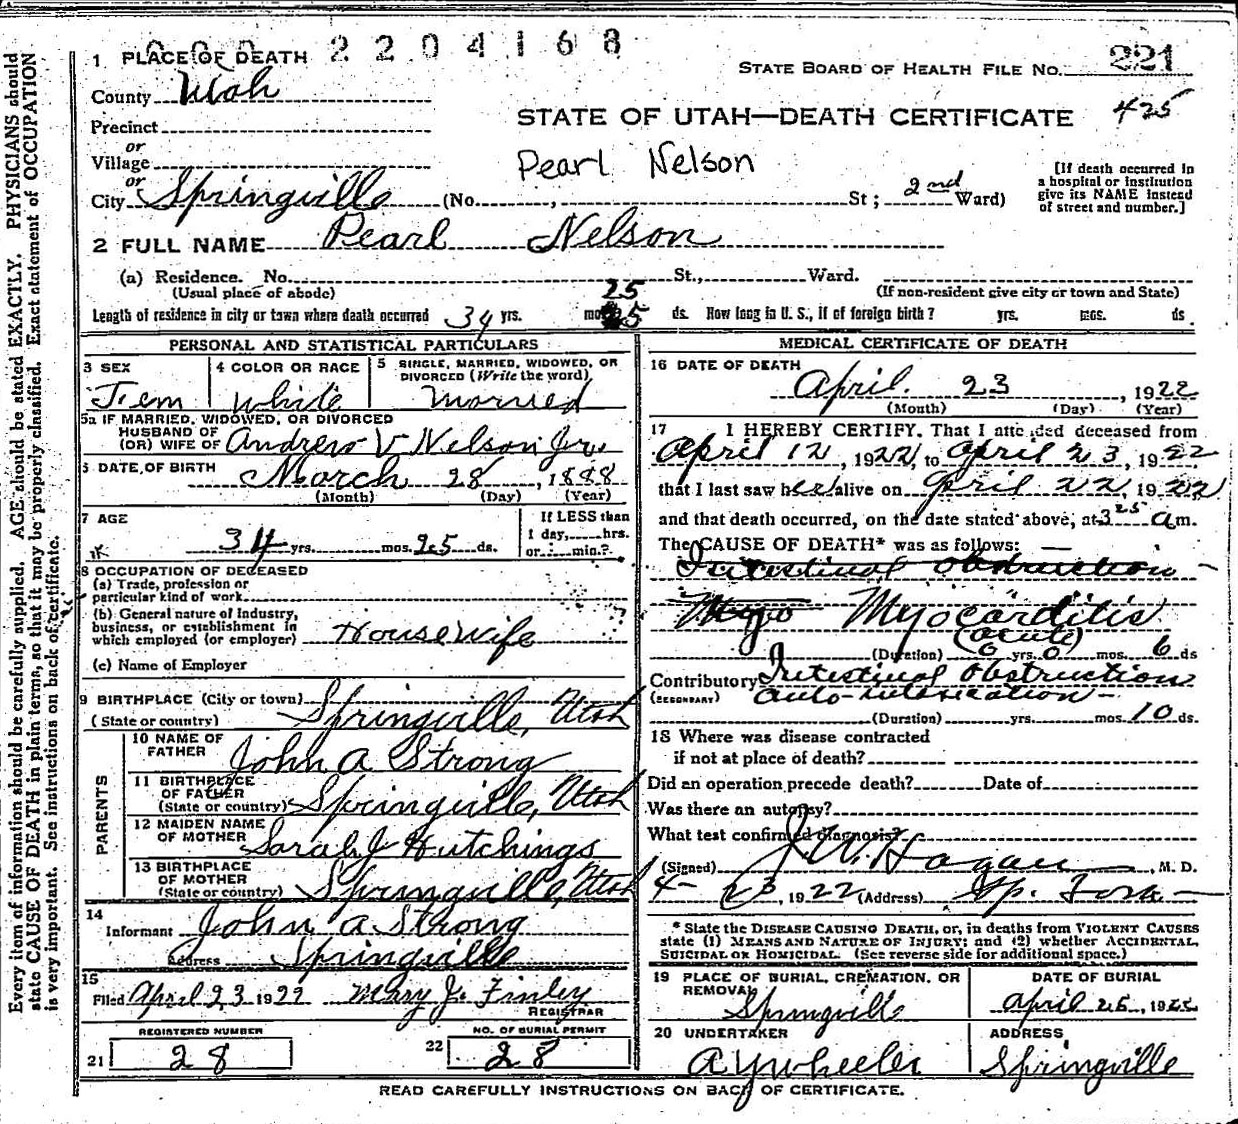 2204168
1 PLACE OF DEATH
STATE BOARD OF HEALTH FILE NO. 221
County Utah
425
STATE OF UTAH—DEATH CERTIFICATE
Precinct
or
Village
Pearl Nelson
[If death occurred in a hospital or institution give its NAME instead of street and number.]
or
City Springville (No. , St; 2nd Ward)
2 FULL NAME Pearl Nelson
(a) Residence. No. St., Ward.
(Usual place of abode) (If non-resident give city or town and State)
25
Length of residence in city or town where death occurred 34 yrs. mos. 25 ds. How long in U. S., if of foreign birth? yrs. mos. ds
PERSONAL AND STATISTICAL PARTICULARS
3 SEX Fem
4 COLOR OR RACE White
5 SINGLE, MARRIED, WIDOWED, OR DIVORCED (Write the word) Married
5a IF MARRIED, WIDOWED, OR DIVORCED
HUSBAND OF
(OR) WIFE OF Andrew V Nelson Jr.
6 DATE OF BIRTH March 28, 1888
(Month) (Day) (Year)
7 AGE
34 yrs. mos. 25 ds.
If LESS than
1 day, hrs.
or min.?
8 OCCUPATION OF DECEASED
(a) Trade, profession or
particular kind of work
(b) General nature of industry,
business, or establishment in
which employed (or employer) Housewife
(c) Name of Employer
9 BIRTHPLACE (City or town)
(State or country) Springville, Utah
PARENTS
10 NAME OF
FATHER John A Strong
11 BIRTHPLACE
OF FATHER
(State or country) Springville, Utah
12 MAIDEN NAME
OF MOTHER Sarah J Hutchings
13 BIRTHPLACE
OF MOTHER
(State or country) Springville, Utah
14
Informant John A Strong
Address Springville
15
Filed April 23 1922 Mary J. Finley
REGISTRAR
REGISTERED NUMBER
21 28
NO. OF BURIAL PERMIT
22 28
MEDICAL CERTIFICATE OF DEATH
16 DATE OF DEATH
April 23, 1922
(Month) (Day) (Year)
17 I HEREBY CERTIFY, That I attended deceased from
April 12, 1922, to April 23, 1922
that I last saw her alive on April 22, 1922
and that death occurred, on the date stated above, at 3 25 a m.
The CAUSE OF DEATH* was as follows:
Intestinal Obstruction
Myo Myocarditis
(acute)
(Duration) 0 yrs. 0 mos. 6 ds
Contributory Intestinal Obstruction
(SECONDARY) auto-intoxication
(Duration) yrs. mos. 10 ds.
18 Where was disease contracted
if not at place of death?
Did an operation precede death? Date of
Was there an autopsy?
What test confirmed diagnosis?
(Signed) J. W. Hagan, M. D.
4-23, 1922 (Address) Sp. Fork
* State the DISEASE CAUSING DEATH, or, in deaths from VIOLENT CAUSES
state (1) MEANS AND NATURE OF INJURY; and (2) whether ACCIDENTAL,
SUICIDAL OR HOMICIDAL. (See reverse side for additional space.)
19 PLACE OF BURIAL, CREMATION, OR
REMOVAL
Springville
DATE OF BURIAL
April 25, 1922
20 UNDERTAKER
A Y Wheeler
ADDRESS
Springville
READ CAREFULLY INSTRUCTIONS ON BACK OF CERTIFICATE.
Every item of information should be carefully supplied. AGE should be stated EXACTLY. PHYSICIANS should
state CAUSE OF DEATH in plain terms, so that it may be properly classified. Exact statement of OCCUPATION
is very important. See instructions on back of certificate.